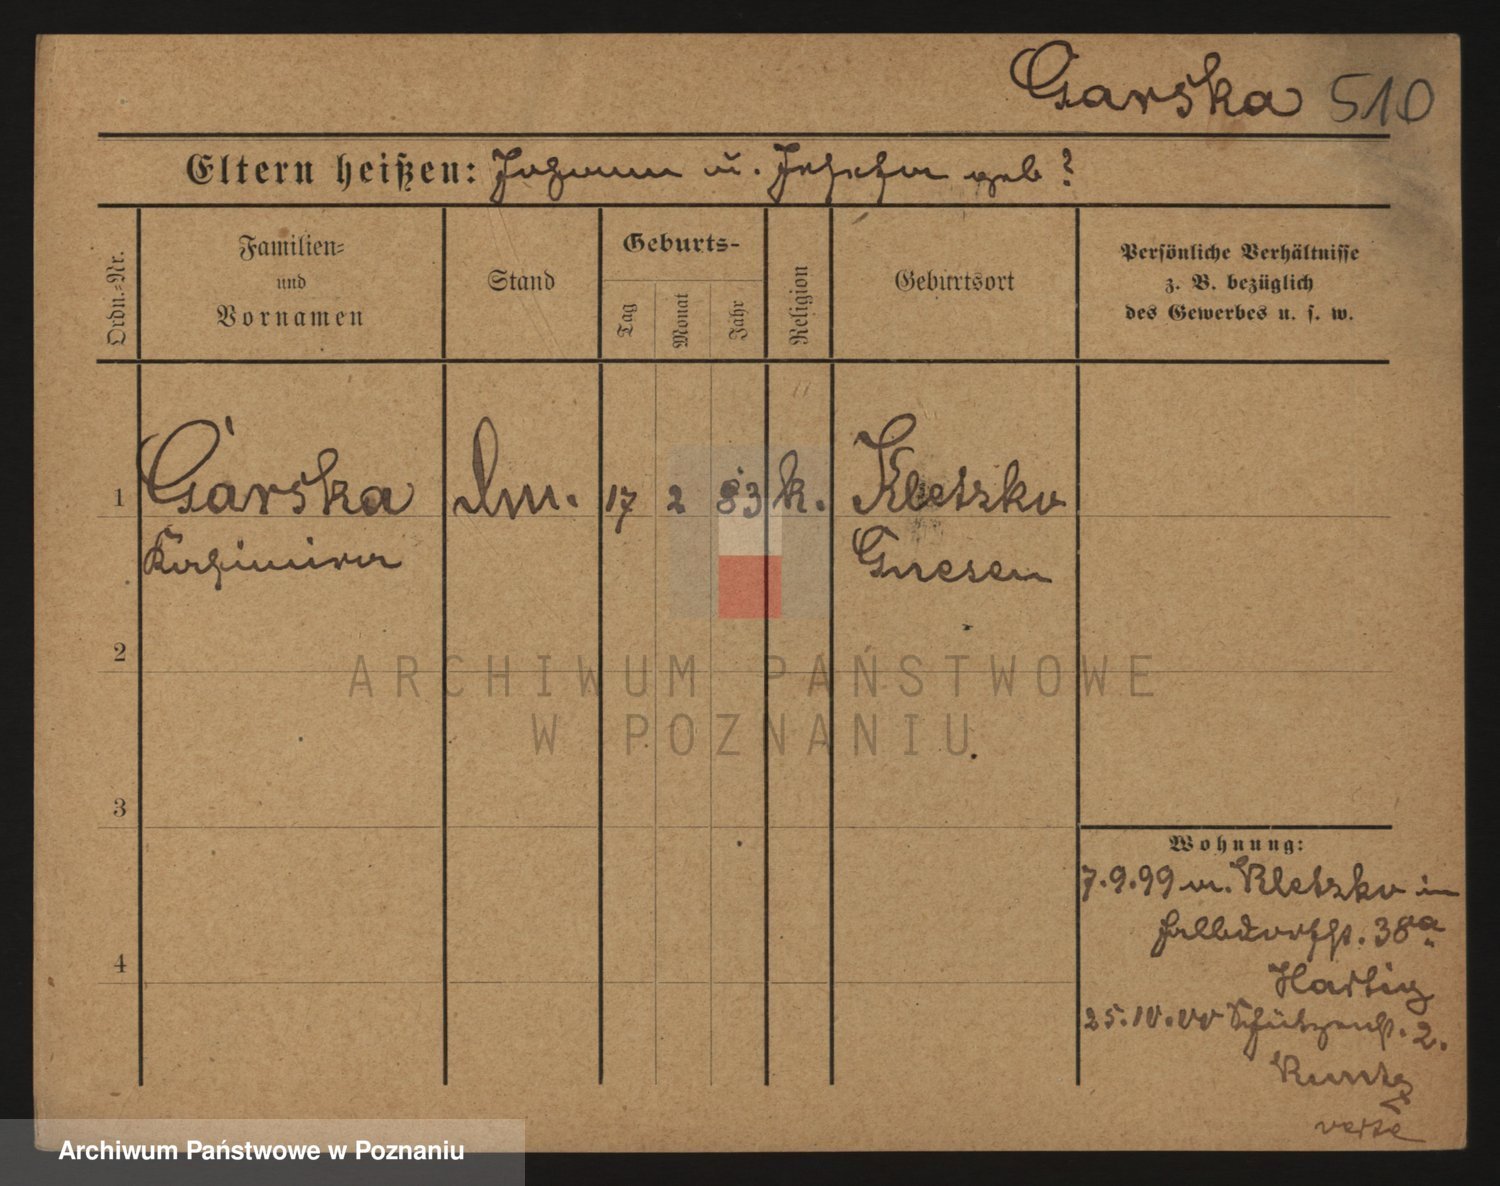 Garska 510
Eltern heißen: Johann u. Josefa geb?
Ordn.-Nr.
Familien-
und
Vornamen
Stand
Geburts-
Tag
Monat
Jahr
Religion
Geburtsort
Persönliche Verhältnisse
z. B. bezüglich
des Gewerbes u. s. w.
1 Garska 17 2 83 k. Kletzko
Kasimira Gnesen
2
ARCHIWUM PAŃSTWOWE
W POZNANIU
3
Wohnung:
7.9.99 v. Kletzko in
38a
4
Hartig
25.10.00 Schützenst. 2.
verte
Archiwum Państwowe w Poznaniu